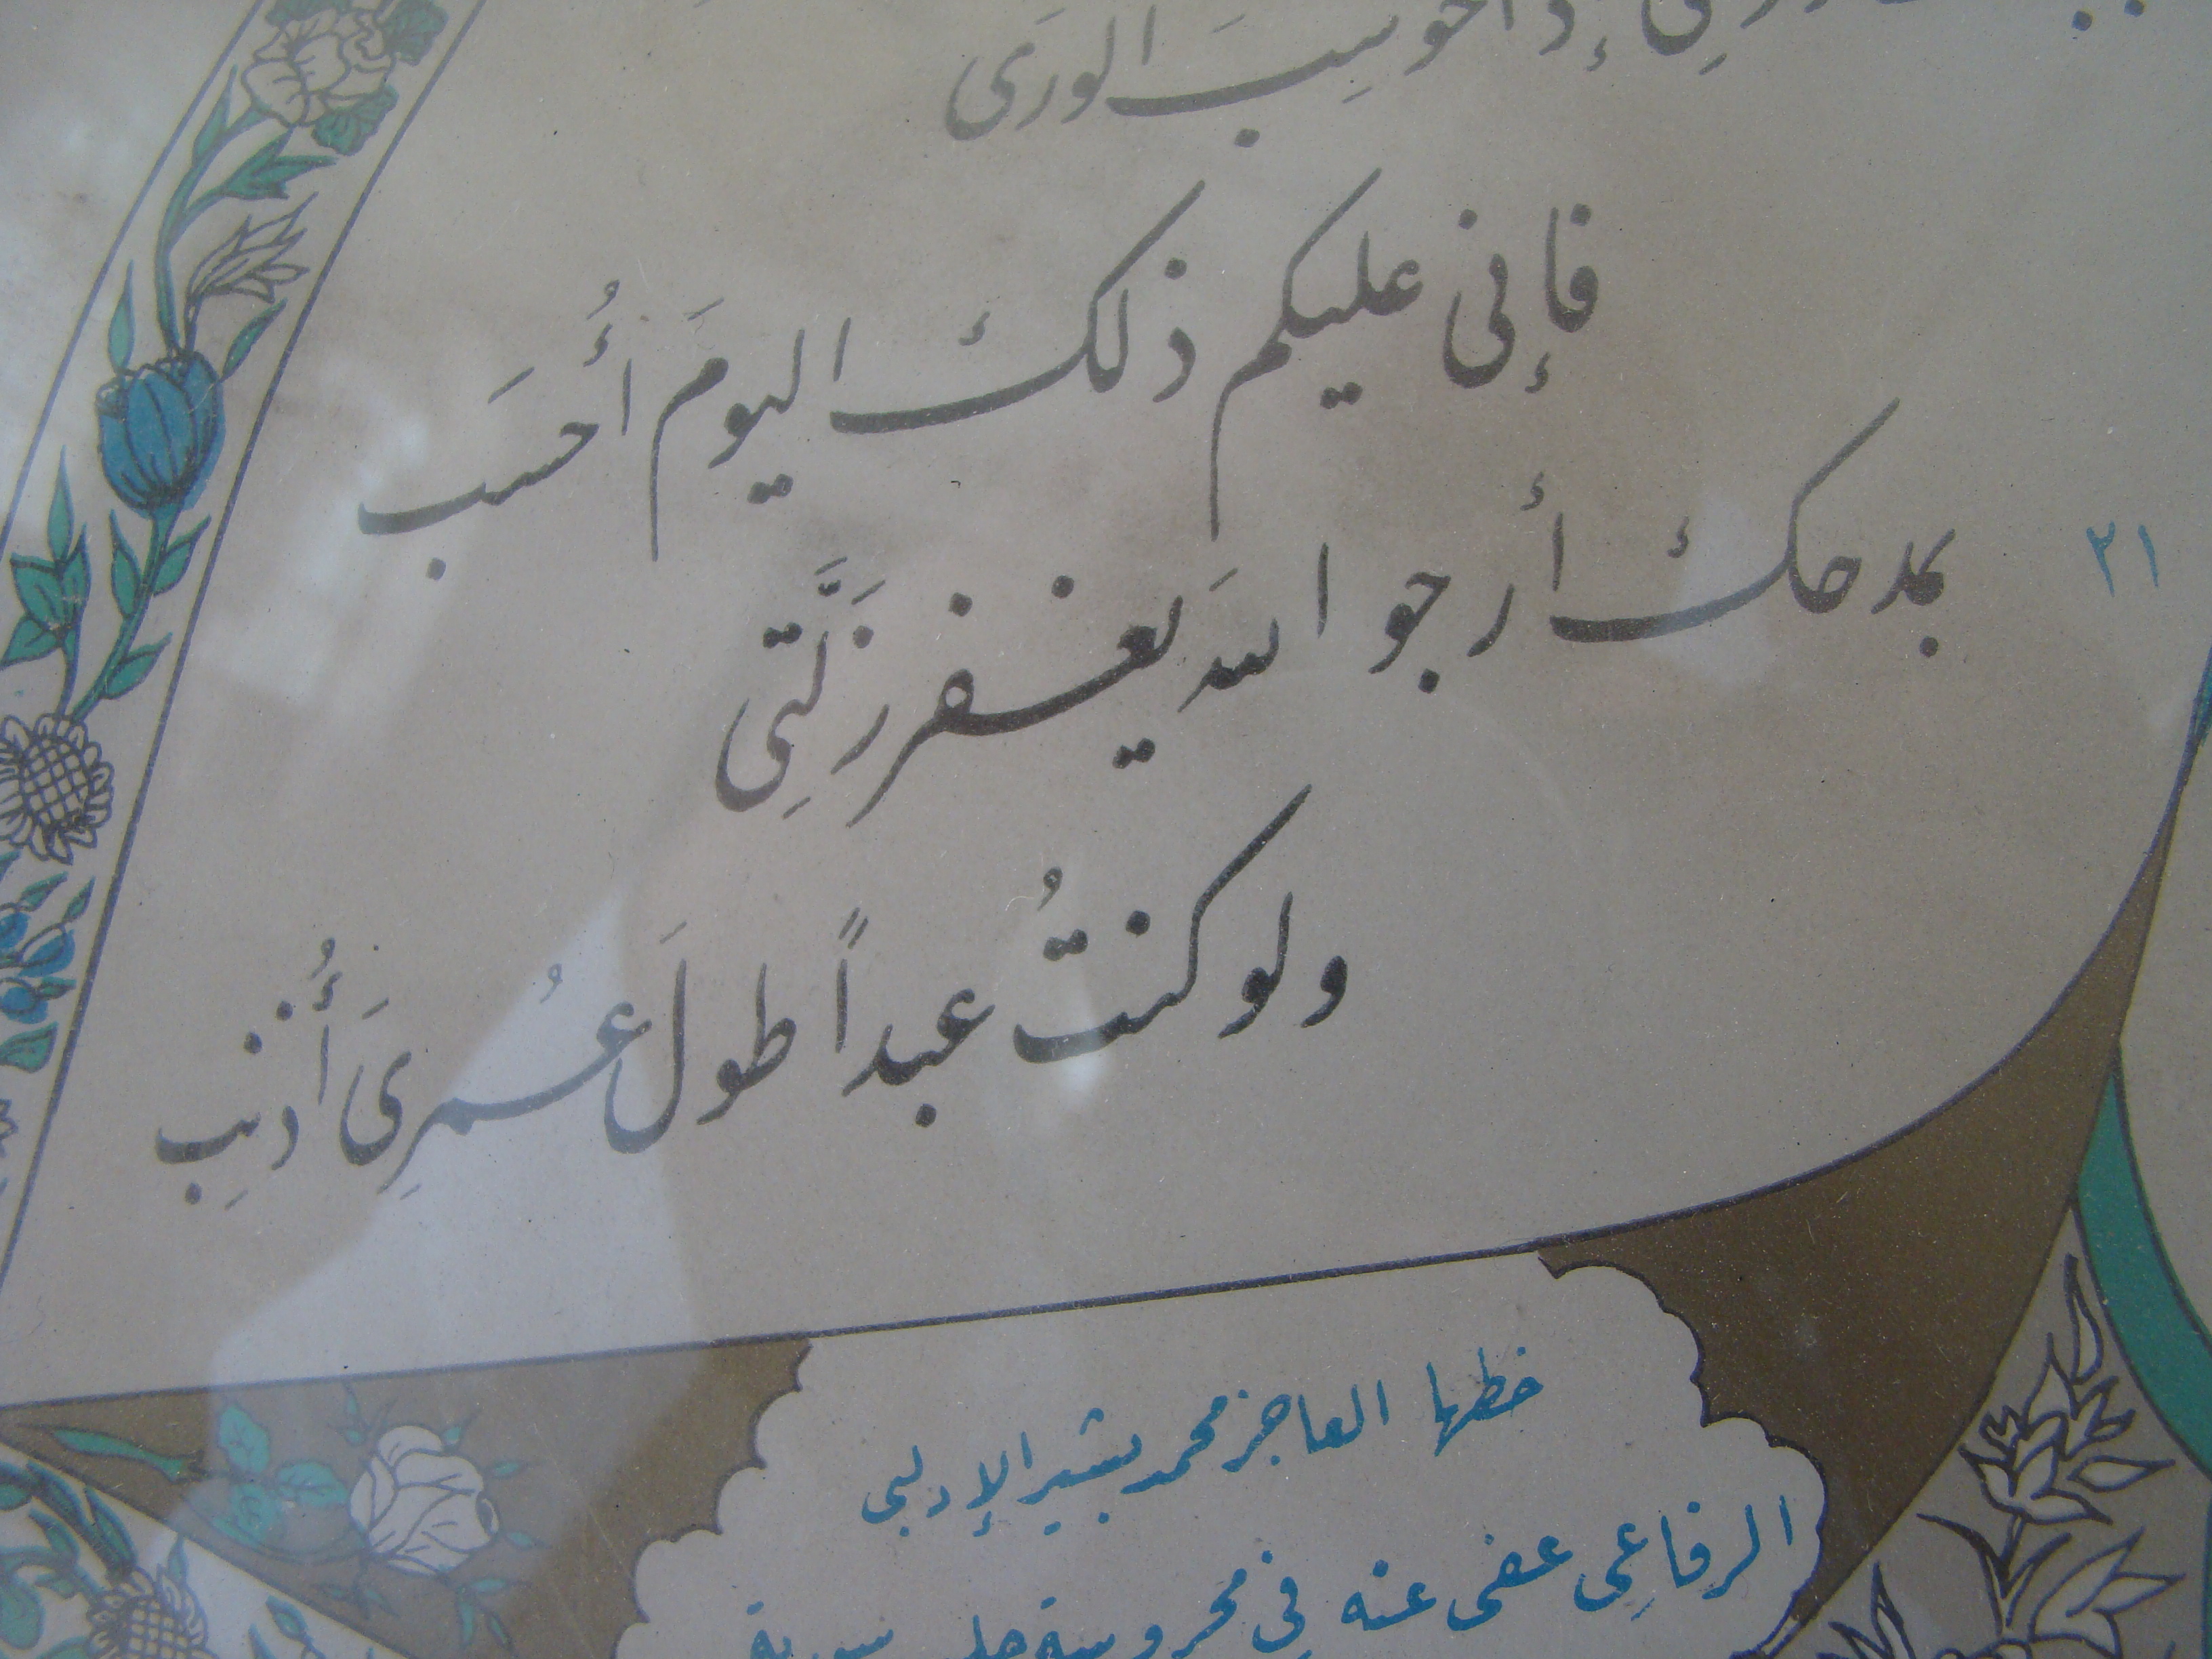 إذا حُوسِبَ الوَرَى
فإنى عليكم ذلك اليومَ أُحسَب
٢١ بمدحك أرجو اللهَ يغفر زَلَّتِى
ولو كنتُ عبداً طولَ عُمرِىَ أُذنِب
خطها العاجز محمد بشير الإدلبى
الرفاعِى عفى عنه فِى محروسة حلب سورية